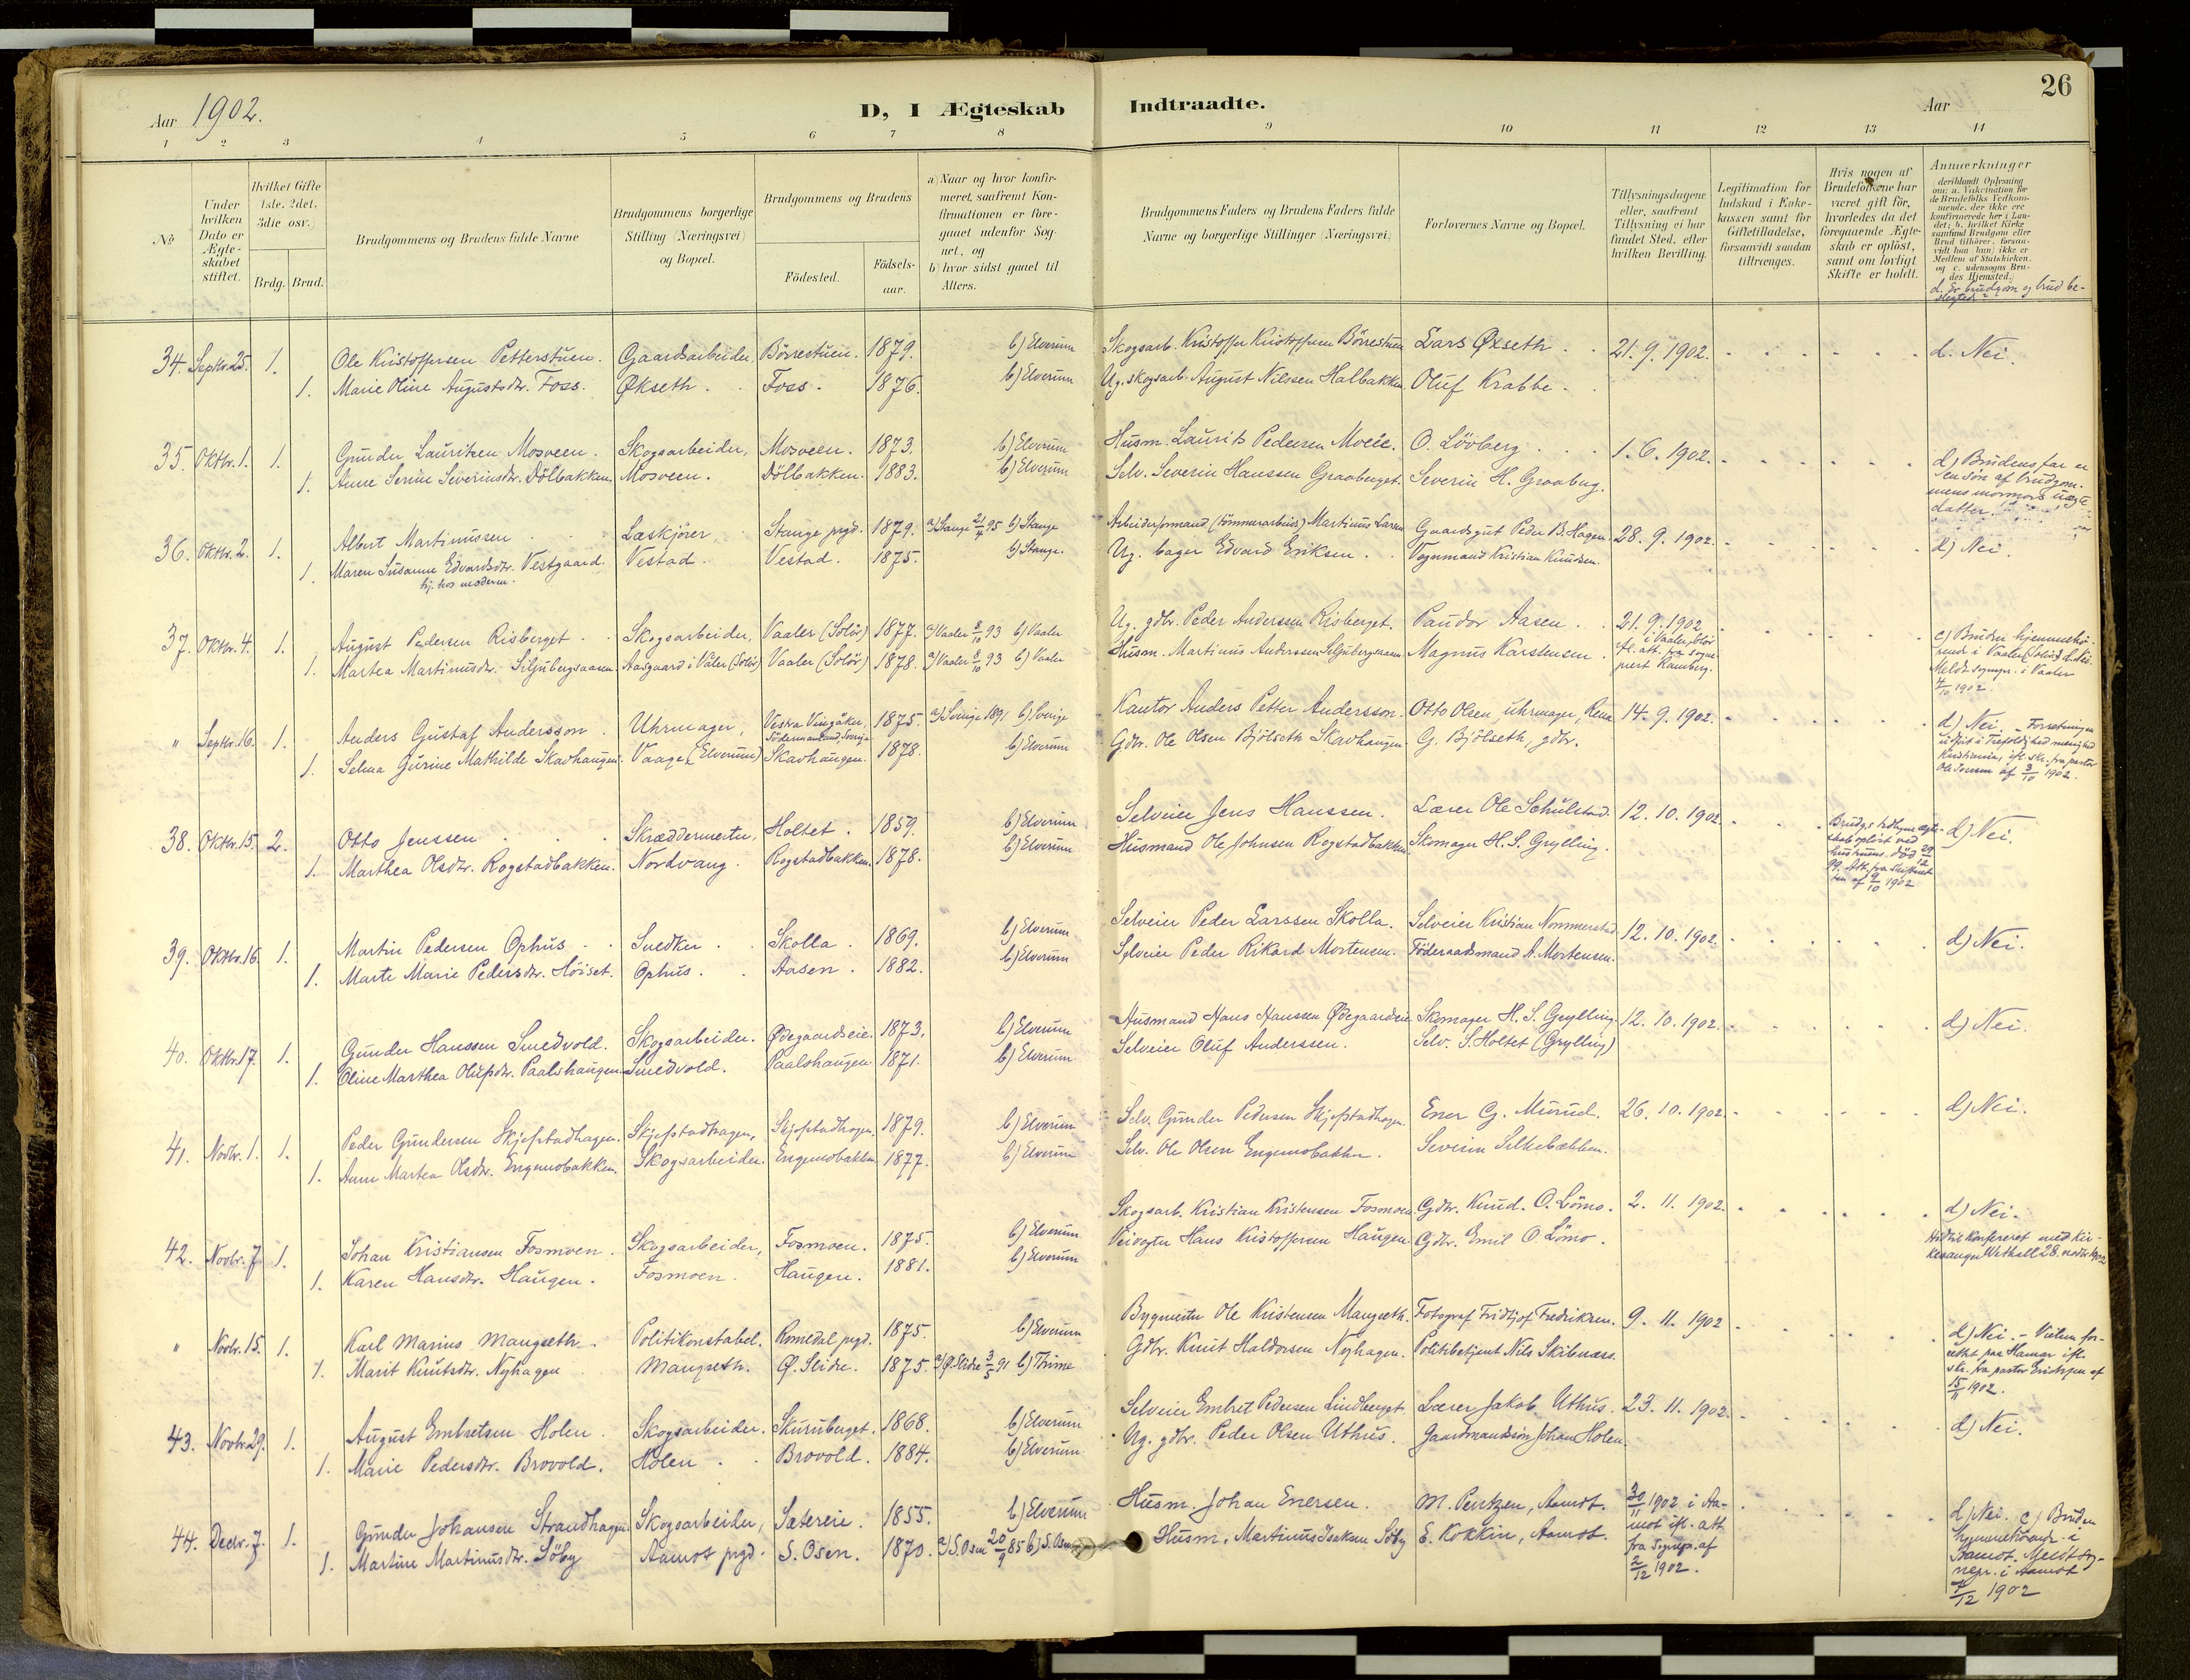 Aar 1902.
D, I Ægteskab Indtraadte.
Aar
26
1 2 3 4 5 6 7 8 9 10 11 12 13 14
No
Under hvilken Dato er Ægteskabet stiftet.
Hvilket Gifte 1ste. 2det. 3die osv.
Brdg. Brud.
Brudgommens og Brudens fulde Navne
Brudgommens borgerlige Stilling (Næringsvei) og Bopæl.
Brudgommens og Brudens
Födested.
Födsels-aar.
a) Naar og hvor konfirmeret, saafremt Konfirmationen er foregaaet udenfor Sognet, og
b) hvor sidst gaaet til Alters.
Brudgommens Faders og Brudens Faders fulde Navne og borgerlige Stillinger (Næringsvei)
Forlovernes Navne og Bopæl.
Tillysningsdagene eller, saafremt Tillysning ei har fundet Sted, efter hvilken Bevilling.
Legitimation for Indskud i Enkekassen samt for Giftetilladelse, forsaavidt saadan tiltrænges.
Hvis nogen af Brudefolkene har været gift för, hvorledes da det foregaaende Ægteskab er oplöst, samt om lovligt Skifte er holdt.
Anmærkninger
deriblandt Oplysning om: a. Vakcination for de Brudefolks Vedkommende, der ikke ere konfirmerede her i Landet; b. hvilket Kirkesamfund Brudgom eller Brud tilhörer, forsaavidt han (hun) ikke er Medlem af Statskirken, og c. udensogns Brudes Hjemsted.
d. Er brudgom og brud beslegted?
34. Septbr. 25. 1. Ole Kristoffersen Petterstuen. Gaardsarbeider, Börrestuen. 1879. b) Elverum Skogsarb. Kristoffer Kristoffersen Börrestuen Lars Øxseth. 21. 9. 1902. d. Nei.
1. Marie Oline Augustsdtr. Foss. Økseth. Foss. 1876. b) Elverum Ug. skogsarb. August Nilssen Halbakken. Oluf Krabbe.
35. Oktbr. 1. 1. Gunder Lauritzen Mosveen. Skogsarbeider, Mosveen. 1873. b) Elverum Husm. Laurits Pedersen Moeie. O. Lövberg 1. 6. 1902. d) Brudens far er
1. Anne Serine Severinsdtr. Dölbakken. Mosveen. Dölbakken. 1883. b) Elverum Selv. Severin Hanssen Graaberget. Severin H. Graaberg. en sön af brudgommens mormors uægte datter.
36. Oktbr. 2. 1. Albert Martinussen Læskjörer Stange prgd. 1879. a) Stange 21/4 95 b) Stange Arbeidsformand (tömmerarbeid) Martinus Larsen Gaardsgut Peder B. Hagen 28. 9. 1902. d) Nei.
1. Maren Susanne Edvardsdtr. Vestgaard. Vestad. Vestad. 1875. b) Stange. Ug. bager Edvard Eriksen. Vognmand Kristian Knudsen.
hj. hos moderen.
37. Oktbr. 4. 1. August Pedersen Risberget. Skogsarbeider, Vaaler (Solör) 1877. a) Vaaler 8/10 93 b) Vaaler Ug. gdbr. Peder Anderssen Risberget. Pandor Aasen. 21. 9. 1902 i Vaaler, Solör c) Bruden hjemmehö-
1. Martea Martinusdtr. Siljubergsaasen. Aasgaard i Våler (Solör) Vaaler (Solör) 1878. a) Vaaler 8/10 93 b) Vaaler Husm. Martinus Anderssen Siljubergsaasen Magnus Karstensen. ifl. att. fra sogneprest Ramberg. rende i Vaaler (Solör) d. Nei. Meldt sognepr. i Vaaler 4/10 1902.
" Septbr. 16. 1. Anders Gustaf Andersson. Uhrmager, Vestra Vingåker, Södermanland, Sverige 1875. a) Sverige 1891 b) Sverige Kantor Anders Petter Andersson. Otto Olsen, uhrmager, Rena 14. 9. 1902. d) Nei. - Forretningen
1. Selma Gurine Mathilde Skavhaugen. Vaage (Elverum) Skavhaugen. 1878. b) Elverum Gdbr. Ole Olsen Bjölseth Skavhaugen G. Bjölseth, gdbr. udfört i Trefoldighed menighed Kristiania, ifl. skr. fra pastor Ole Iversen af 3/10 1902.
38. Oktbr. 15. 2. Otto Jenssen Skræddermester, Holtet. 1859. b) Elverum Selveier Jens Hanssen. Lærer Ole Schulstad. 12. 10. 1902. Brudg.s tidligere ægteskab oplöst ved hustruens död 29/12 99. Att. fra skifteretten af 9/10 1902 d) Nei.
1. Marthea Olsdtr. Rogstadbakken. Nordvang. Rogstadbakken. 1878. b) Elverum Husmand Ole Johnsen Rogstadbakken. Skomager H. S. Grylling.
39. Oktbr. 16. 1. Martin Pedersen Ophus. Snedker. Skolla. 1869. b) Elverum Selveier Peder Larssen Skolla. Selveier Kristian Nommerstad 12. 10. 1902. d) Nei.
1. Marte Marie Pedersdtr. Höiset. Ophus. Aasen. 1882. b) Elverum Selveier Peder Rikard Mortensen. Föderaadsmand A. Mortensen.
40. Oktbr. 17. 1. Gunder Hanssen Smedvold. Skogsarbeider. Ødegaardseie. 1873. b) Elverum Husmand Hans Hanssen Ødegaardseie Skomager H. S. Grylling. 12. 10. 1902. d) Nei.
1. Oline Marthea Olufsdtr. Paalshaugen Smedvold. Paalshaugen. 1871. b) Elverum Selveier Oluf Anderssen. Selv. S. Holtet (Grylling)
41. Novbr. 1. 1. Peder Gundersen Skjefstadhagen. Skjefstadhagen, Skjefstadhagen. 1879. b) Elverum Selv. Gunder Pedersen Skjefstadhagen. Ener G. Murud. 26. 10. 1902. d) Nei.
1. Anne Martea Olsdtr. Engemobakken. Skogsarbeider. Engemobakken 1877. b) Elverum Selv. Ole Olsen Engemobakken. Severin Silkebækken.
42. Novbr. 7. 1. Johan Kristiansen Fosmoen. Skogsarbeider, Fosmoen. 1875. b) Elverum. Skogsarb. Kristian Kristensen Fosmoen. Gdbr. Knud. O. Lömo. 2. 11. 1902. d) Nei.
1. Karen Hansdtr. Haugen. Fosmoen. Haugen. 1881. b) Elverum Veivogter Hans Kristoffersen Haugen. Gdbr. Emil O. Lömo. Hidtil konfereret med kirkesanger Uthell 28. novbr. 1902
" Novbr. 15. 1. Karl Marius Mangseth. Politikonstabel. Romedal prgd. 1875. b) Elverum Bygmester Ole Kristensen Mangseth. Fotograf Fridtjof Fredriksen. 9. 11. 1902 d) Nei. - Vielsen for-
1. Marit Knutsdtr. Nyhagen Mangseth. Ø. Slidre. 1875. a) Ø. Slidre 3/5 91 b) Thime Gdbr. Knut Haldorsen Nyhagen. Politibetjent Nils Skibnæss. rettet paa Hamar ifl. skr. fra pastor Erichsen af 15/11 1902.
43. Novbr. 29. 1. August Embretsen Holen. Skogsarbeider. Skuruberget. 1868. b) Elverum Selveier Embret Pedersen Lindberget Lærer Jakob Uthus. 23. 11. 1902. d) Nei.
1. Marie Pedersdtr. Brovold. Holen. Brovold. 1884. b) Elverum Ug. gdbr. Peder Olsen Uthus. Gaardmandssön Johan Holen.
44. Decbr. 7. 1. Gunder Johansen Strandhagen. Skogsarbeider, Sætereie. 1855. b) Elverum Husm. Johan Enersen. M. Pentzen, Aamot. 30/11 1902 i Aamot ifl. att. fra sognepr. af 2/12 1902. d) Nei. c) Bruden
1. Martine Martinusdtr. Söby Aamot prgd. S. Osen. 1870. a) S. Osen 20/9 85 b) S. Osen Husm. Martinus Isaksen Söby E. Kokkin, Aamot. hjemmehörende i Aamot. Meldt sognepr. i Aamot 7/12 1902